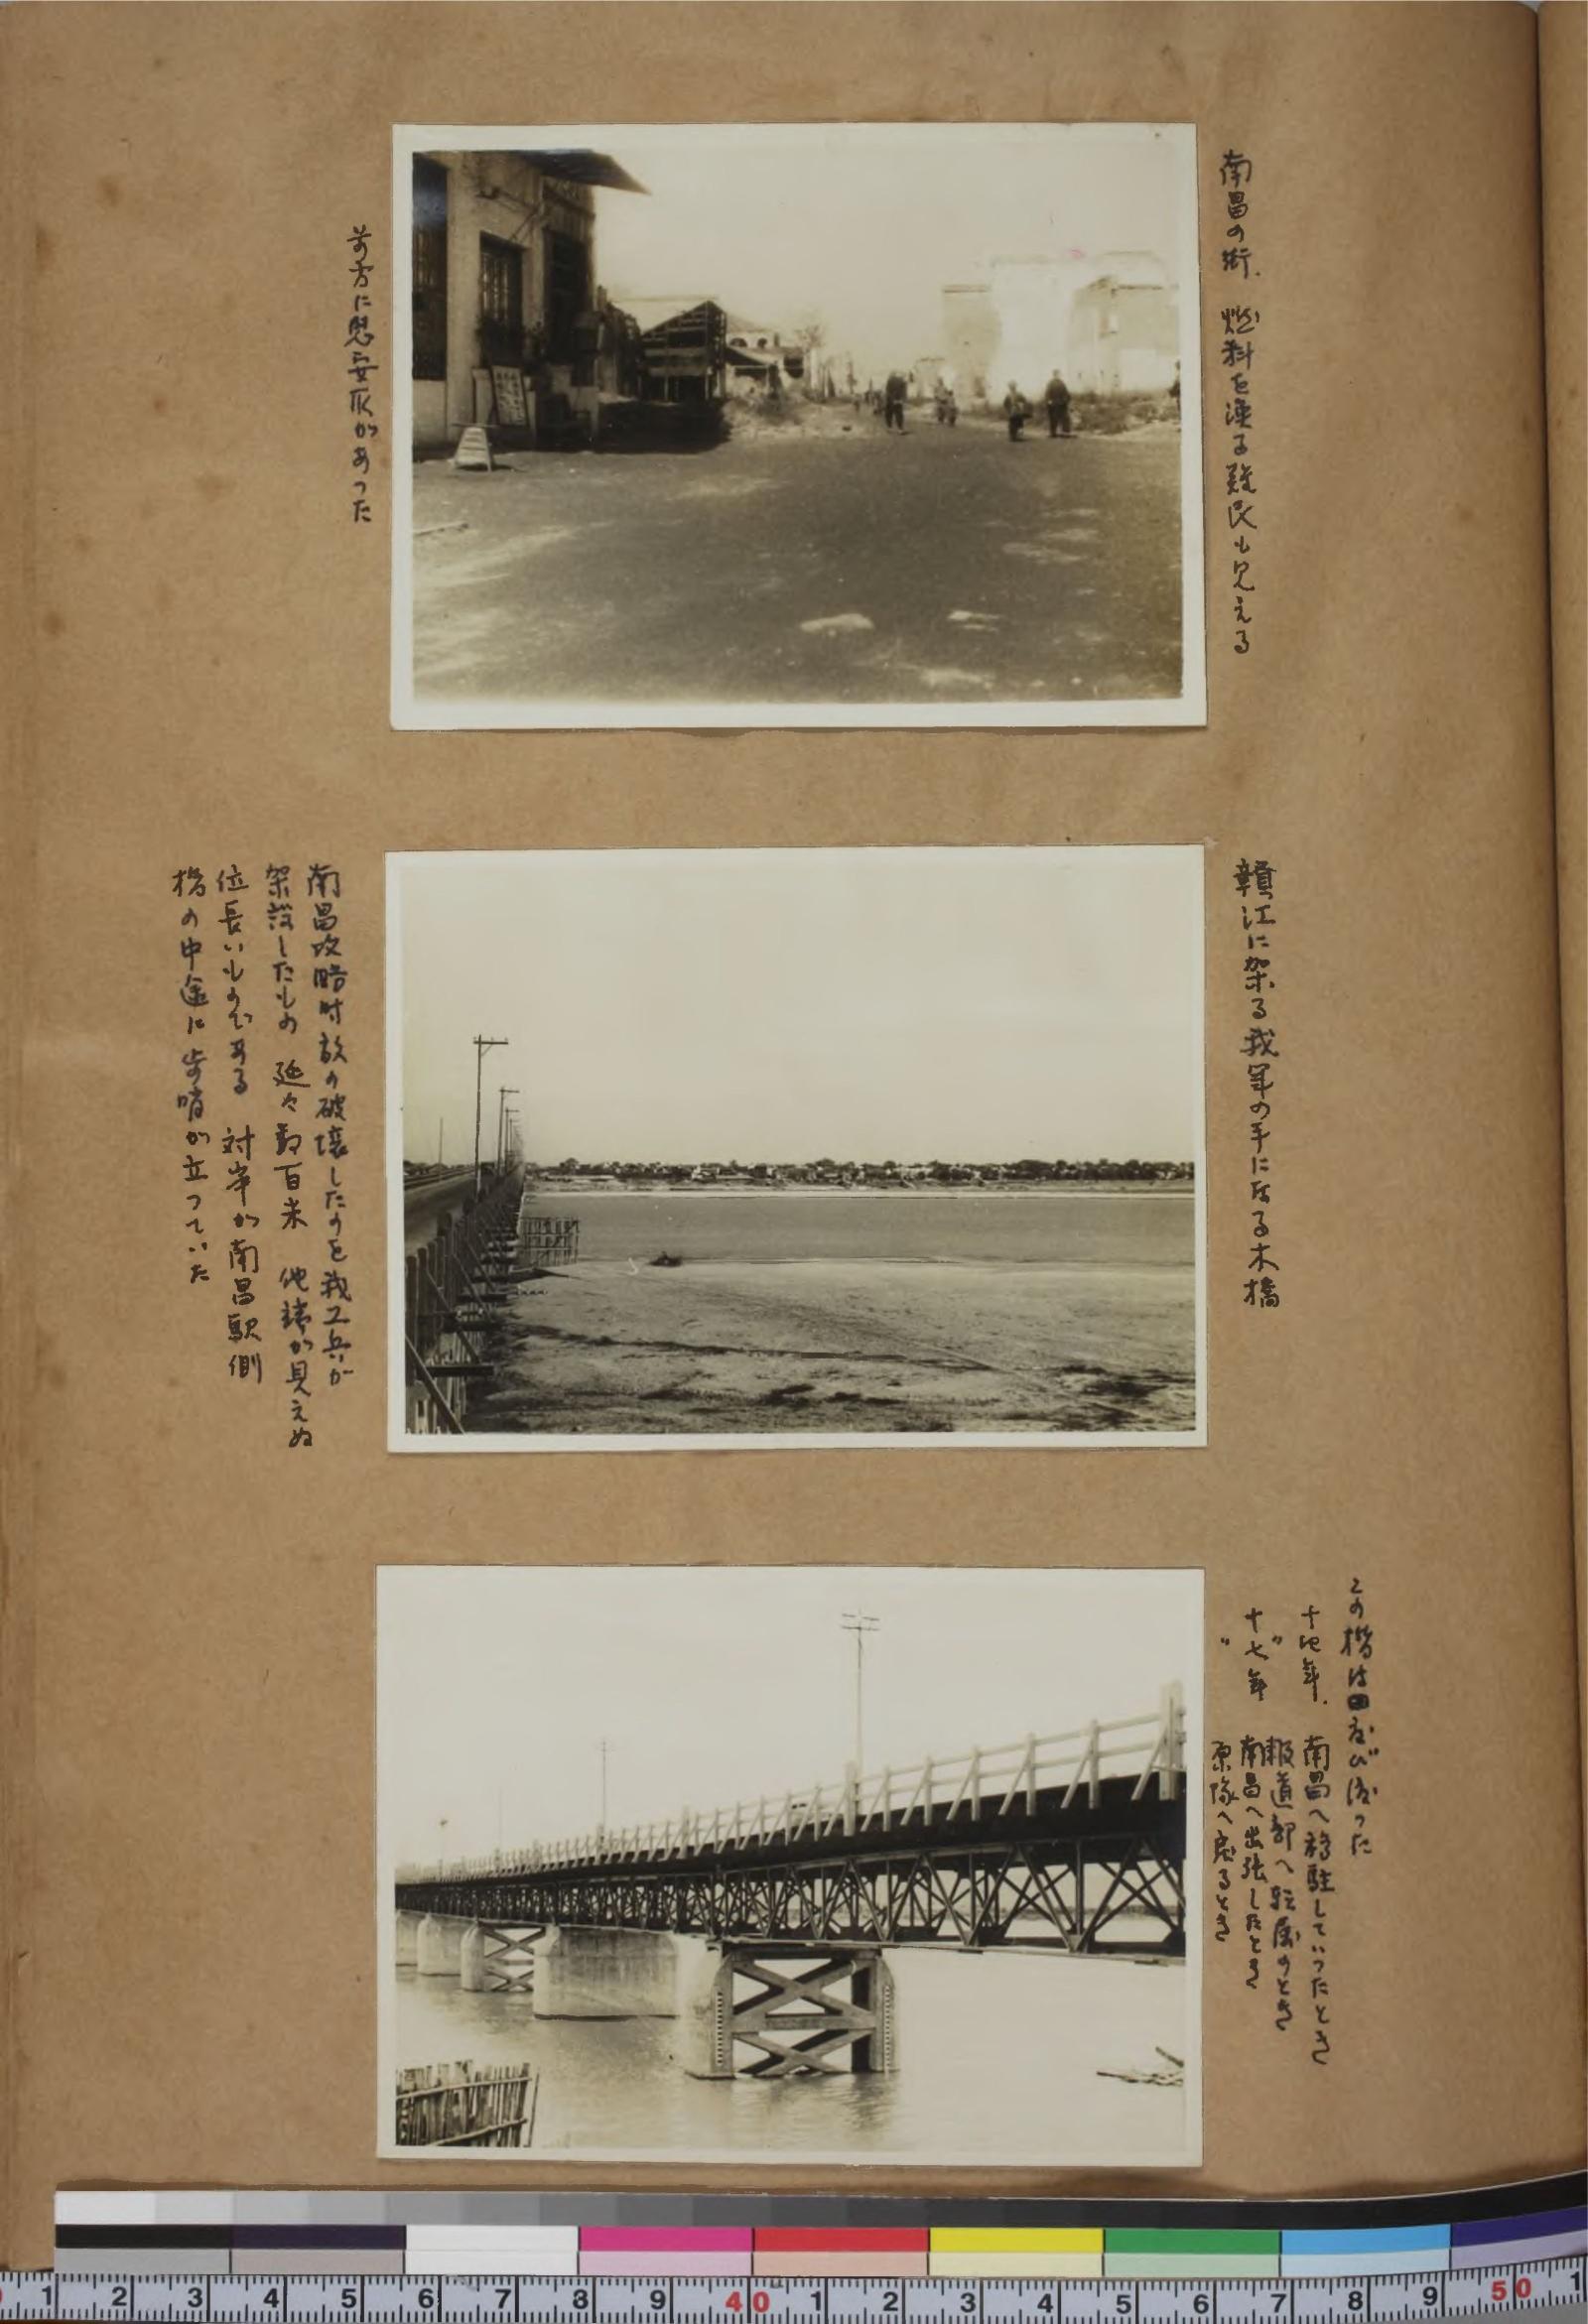 南昌の街、燃料を漁る難民も見える
前方に慰安所があった
贛江に架る我軍の手になる木橋
南昌攻略時敵の破壊したのを我工兵が
架設したもの 延々数百米 他端が見えぬ
位長いものである 対岸が南昌駅側
橋の中途に歩哨が立っていた
この橋は四度び渡った
十四年、南昌へ移駐していったとき
〃 報道部へ転属のとき
十七年 南昌へ出張したとき
〃 原隊へ戻るとき
1 2 3 4 5 6 7 8 9 40 1 2 3 4 5 6 7 8 9 50 1